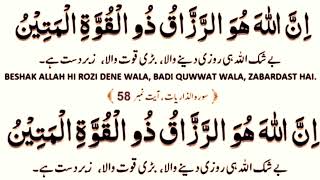 اِنَّ اللّٰهَ هُوَ الرَّزَّاقُ ذُو الْقُوَّةِ الْمَتِيْنُ
بے شک اللہ ہی روزی دینے والا، بڑی قوت والا، زبردست ہے۔
BESHAK ALLAH HI ROZI DENE WALA, BADI QUWWAT WALA, ZABARDAST HAI.
سورہ الذاریات، آیت نمبر 58
اِنَّ اللّٰهَ هُوَ الرَّزَّاقُ ذُو الْقُوَّةِ الْمَتِيْنُ
بے شک اللہ ہی روزی دینے والا، بڑی قوت والا، زبردست ہے۔